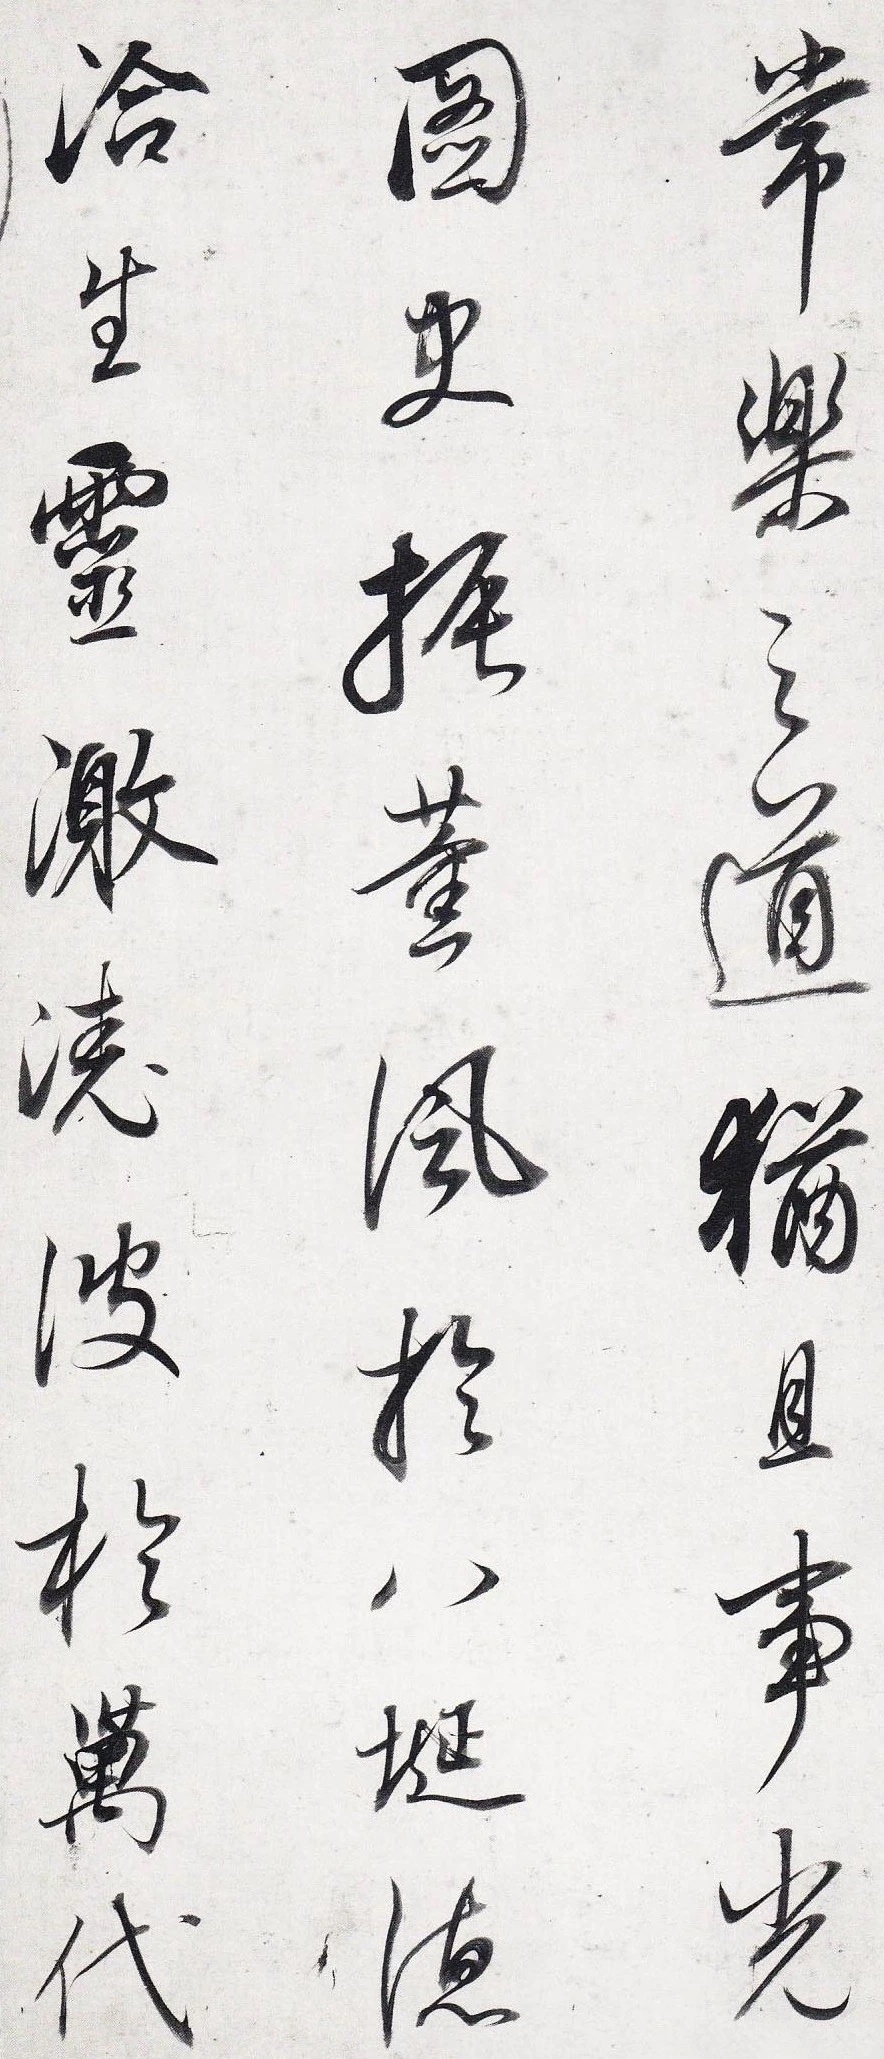 常樂之道猶且事光
圖史振薰風於八埏德
洽生靈激澆波於萬代